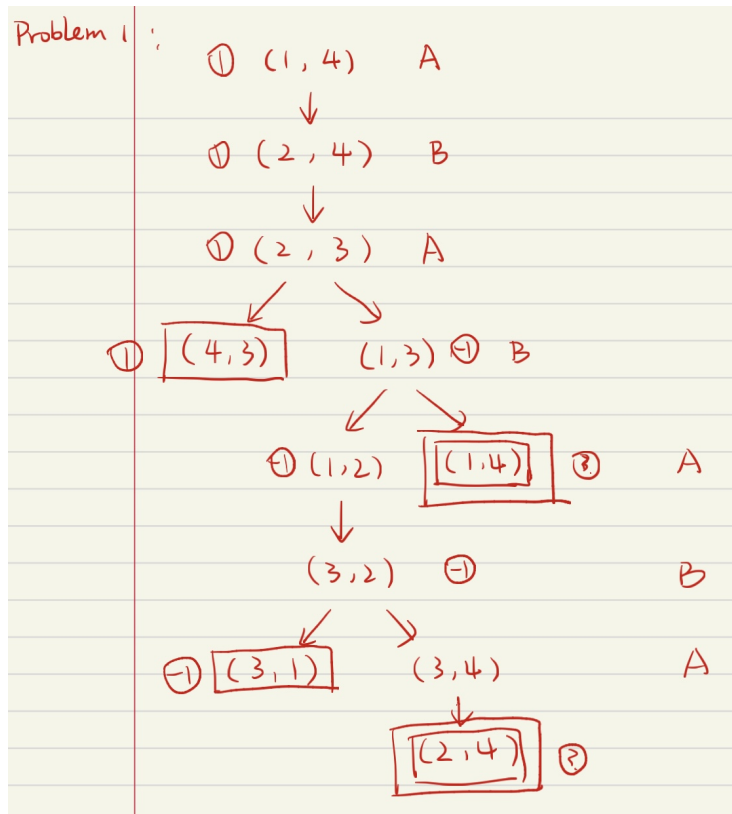 Problem 1:
① (1, 4) A
① (2, 4) B
① (2, 3) A
① (4, 3) (1, 3) -1 B
-1 (1, 2) (1, 4) ? A
(3, 2) -1 B
-1 (3, 1) (3, 4) A
(2, 4) ?